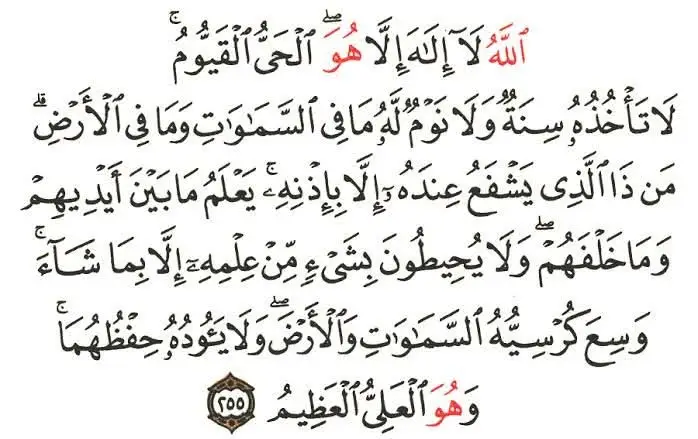 ٱللَّهُ لَآ إِلَٰهَ إِلَّا هُوَ ۖ ٱلْحَىُّ ٱلْقَيُّومُ ۚ
لَا تَأْخُذُهُۥ سِنَةٌ وَلَا نَوْمٌ ۚ لَّهُۥ مَا فِى ٱلسَّمَٰوَٰتِ وَمَا فِى ٱلْأَرْضِ ۗ
مَن ذَا ٱلَّذِى يَشْفَعُ عِندَهُۥٓ إِلَّا بِإِذْنِهِۦ ۚ يَعْلَمُ مَا بَيْنَ أَيْدِيهِمْ
وَمَا خَلْفَهُمْ ۖ وَلَا يُحِيطُونَ بِشَىْءٍ مِّنْ عِلْمِهِۦٓ إِلَّا بِمَا شَآءَ ۚ
وَسِعَ كُرْسِيُّهُ ٱلسَّمَٰوَٰتِ وَٱلْأَرْضَ ۖ وَلَا يَـُٔودُهُۥ حِفْظُهُمَا ۚ
وَهُوَ ٱلْعَلِىُّ ٱلْعَظِيمُ ٢٥٥